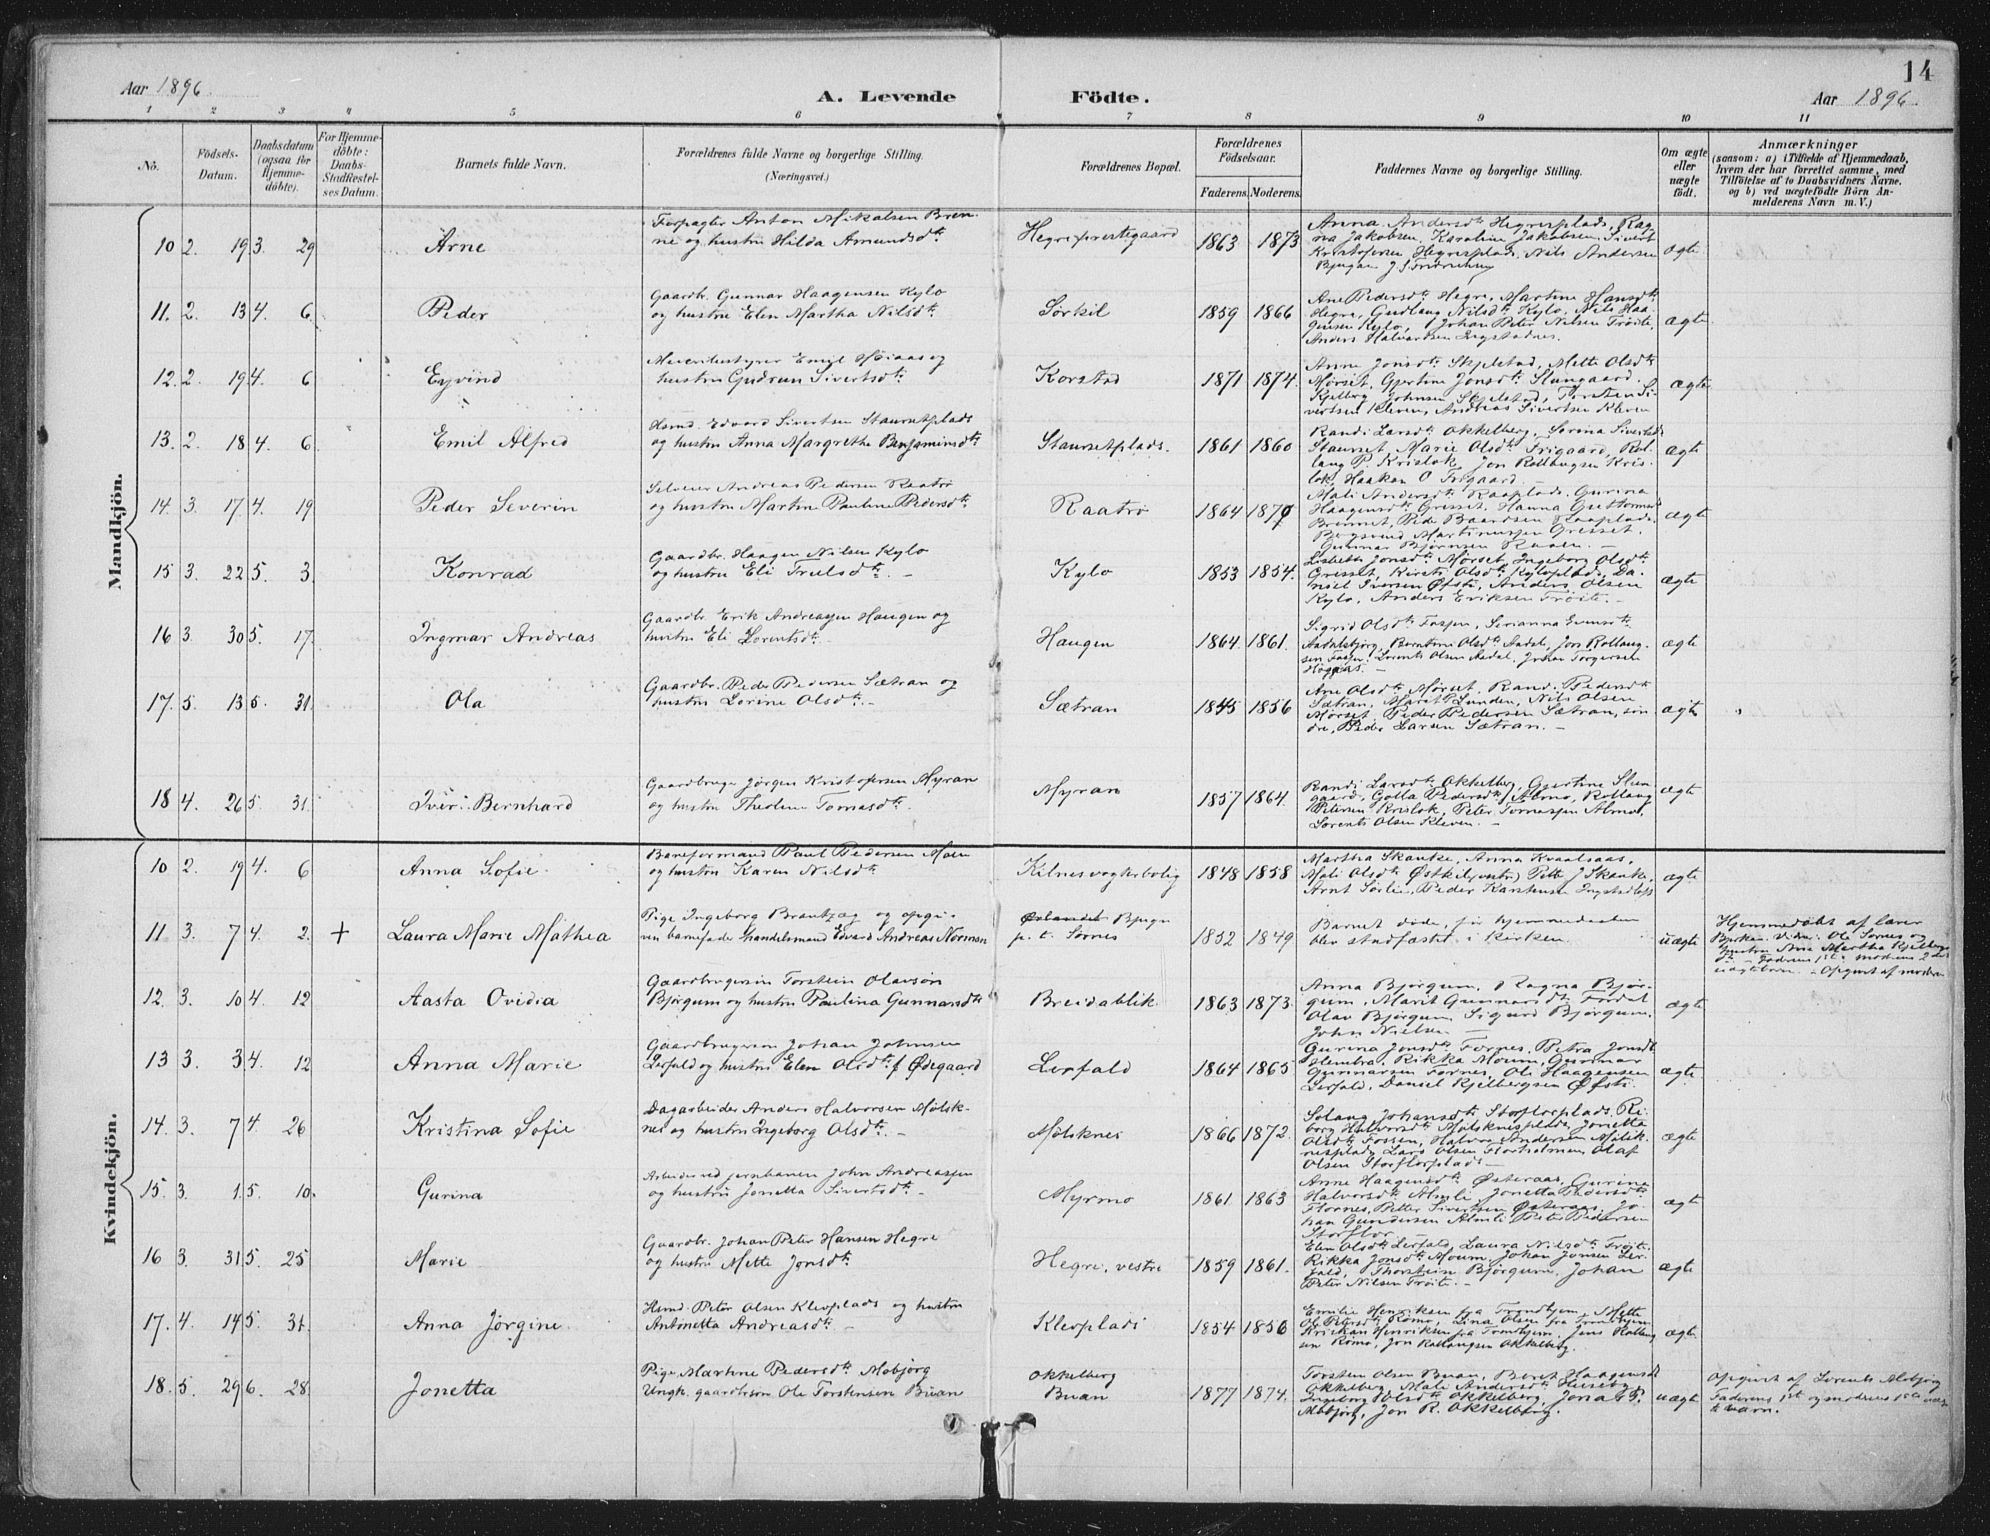 14
Aar 1896.
A. Levende Födte.
Aar 1896.
1 2 3 4 5 6 7 8 9 10 11
No.
Födsels-
Datum.
Daabsdatum
(ogsaa for
Hjemme-
döbte).
For Hjemme-
döbte:
Daabs-
Stadfæstel-
ses Datum.
Barnets fulde Navn.
Forældrenes fulde Navne og borgerlige Stilling.
(Næringsvei.)
Forældrenes Bopæl.
Forældrenes
Födselsaar.
Faderens.
Moderens.
Faddernes Navne og borgerlige Stilling.
Om ægte
eller
uægte
födt.
Anmærkninger
(saasom: a) i Tilfælde af Hjemmedaab,
hvem der har forrettet samme, med
Tilföielse af to Daabsvidners Navne,
og b) ved uægtefödte Börn An-
melderens Navn m. V.)
Mandkjön.
10 2. 19 3. 29
Arne
Forpagter Anton Mikalsen Bren-
ne og hustru Hilda Amundsdtr.
Hegre prestegaard
1863 1873
Anna Andersdtr Hegresplads, Rag-
na Jakobsen, Karoline Jakobsen, Sivert
Kristofersen Hegresplads, Nils Andersen
ægte
11. 2. 13 4. 6.
Peder
Gaardbr. Gunnar Haagensen Kylo
og hustru Elen Martha Nilsdtr.
Sørkil
1859 1866
Ane Pedersdtr Hegre, Martine Hansdtr
Hegre, Gudlaug Nilsdtr Kylo, Nils Haa-
gensen Kylo, Johan Peter Nilsen Trøite,
Anders Halvardsen Ingstadnes.
ægte
12. 2. 19 4. 6
Eyvind
Meieribestyrer Emil Høiaas og
hustru Gudrun Sivertsdtr.
Korstad
1871 1874.
Anne Jonsdtr Skjelstad, Mette Olsdtr
Mørset, Gjertine Jonsdtr Slungaard.
Kjelberg Johnsen Skjelstad, Torsten Si-
vertsen Kleven, Andreas Sivertsen Kleven
ægte
13. 2. 18 4. 6
Emil Alfred
Hsmd. Edvard Sivertsen Staursetplads
og hustru Anna Margrethe Benjaminsdtr
Staursetplads.
1861 1860
Randi Larsdtr Okkelberg, Sorina Sivertsdtr
Staurset, Marie Olsdtr Trøgaard, Rol-
laug P. Krislok, Jon Rollaugsen Kris-
lok, Haakon O. Trøgaard.
ægte
14. 3. 17 4. 19
Peder Severin
Selveier Andreas Pedersen Raatrø
og hustru Martha Pauline Pedersdtr
Raatrø
1864 1870
Mali Andersdtr Raaplads, Gurina
Haagensdtr Gresset, Hanna Guttormsdtr
Bremset, Peder Baardsen Raaplads,
Bergsvend Martinussen Gresset,
Gunnar Bjørnsen Raaen.
ægte
15 3. 22 5. 3.
Konrad
Gaardbr. Haagen Nilsen Kylo
og hustru Eli Trulsdtr.
Kylo
1853 1854.
Lisbeth Jonsdtr Mørset, Ingeborg Olsdtr
Gresset, Kirsti Olsdtr Kyloplads, Da-
niel Iversen Øfsti, Anders Olsen
Kylo, Anders Eriksen Trøite.
ægte
16 3. 30 5. 17.
Ingmar Andreas
Gaardbr Erik Andreassen Haugen og
hustru Eli Lorentsdtr.
Haugen
1864 1861.
Sigrid Olsdtr Fossen, Serianna Evensdtr
Aadalsbjørg, Berntine Olsdtr Aadal, Jon Rollaug-
sen Fossen, Lorents Olsen Aadal, Johan Torgersen
Høgaas.
ægte
17. 5. 13 5. 31.
Ola
Gaardbr. Peder Pedersen Sætran og
hustru Lorine Olsdtr.
Sætran
1845 1856
Ane Olsdtr Mørset, Randi Pedersdtr
Sætran, Marit Lunden, Nils Olsen
Mørset, Peder Pedersen Sætran, søn-
dre, Peder Larsen Sætran.
ægte
18 4. 26 5. 31.
Iver Bernhard
Gaardbruger Jørgen Kristofersen Myran
og hustru Theoline Tomasdtr.
Myran
1857 1864.
Randi Larsdtr Okkelberg, Gjertine Slun-
gaard, Golla Pedersdtr Almo, Rollaug
Petersen Krislok, Peter Tomassen Almo,
Lorents Olsen Kleven.
ægte
Kvindekjön.
10 2. 19 4. 6
Anna Sofie.
Baneformand Paul Pedersen Moen
og hustru Karen Nilsdtr
Kilnes vogterbolig
1848 1858
Martha Skanke, Anna Kvaalsaas,
Mali Olsdtr Østkil (vestre) Petter J Skanke,
Arnt Sørlie, Peder Karstensen Ingstadløs
ægte
11. 3. 7 4. 2. +
Laura Marie Mathea
Pige Ingeborg Brandtzæg og opgi-
ven barnefader Handelsmand Edvard Andreas Norman
Ørlandet Bjugn
p. t. Sornes
1852 1849
Barnet døde, før hjemmedaaben
blev stadfæstet i kirken.
uægte
Hjemmedøbt af lærer
Bjerkan. Vidner: Ole Sornes og
hustru Ane Martha Kjelbergs-
dtr. - Faderens 1ste, moderens 2det
uægtebarn. - Opgivet af moderen
12. 3. 10 4. 12
Aasta Ovidia
Gaardbrugersøn Torstein Olavsøn
Bjørgum og hustru Paulina Gunnarsdtr
Breidablik
1863 1873.
Anna Bjørgum, Ragna Bjør-
gum, Marit Gunnarsdtr Fordal
Olav Bjørgum, Sigurd Bjørgum,
John Nielsen
ægte
13 3. 3 4. 12
Anna Marie
Gaardbrugersøn Johan Johnsen
Lerfald og hustru Elen Olsdtr f Ødegaard
Lerfald
1864 1865
Gurina Jonsdtr Fornes, Petra Jonsdtr
Hembre, Rikka Moum, Gunnar
Gunnarsen Fornes, Ole Haagensen
Lerfald, Daniel Kjelbergsen Øfsti.
ægte
14. 3. 7 4. 26
Kristina Sofie
Dagarbeider Anders Halvorsen Mølsk-
nes og hustru Ingeborg Olsdtr.
Mølsknes
1866 1872.
Solaug Johansdtr Storflorplads, Re-
berg Halvorsdtr Mølsknesplads, Jonetta
Olsdtr Fossen, Halvor Andersen Mølsk-
nesplads, Lars Olsen Storholmen, Olaf
Olsen Storflorplads
ægte
15. 3. 1. 5. 10.
Gurina
Arbeider ved jernbanen John Andreassen
og hustru Jonetta Sivertsdtr
Myrmo
1861 1863
Anne Haagensdtr Østeraas, Gurine
Halvorsdtr Almli, Jonetta Pedersdtr
Flornes, Petter Sivertsen Østeraas, Jo-
han Gundersen Almli, Peter Pedersen
Storflor.
ægte
16 3. 31. 5. 25
Marie
Gaardbr. Johan Peter Hansen Hegre
og hustru Mette Jonsdtr
Hegre, vestre
1859 1861.
Elen Olsdtr Lerfald, Laura Nilsdtr Trøite,
Rikka Jonsdtr Moum, Johan Jonsen Ler-
fald, Thorstein Bjørgum, Johan
Peter Nilsen Trøite.
ægte
17. 4. 14 5. 31.
Anna Jørgine.
Hsmd. Peter Olsen Klevplads og hustru
Antonetta Andreasdtr.
Klevplads
1854 1856
Emilie Henriksen fra Trondhjem, Mette
Ol. Petersdtr Romo, Lina Olsen fra Trondhjem
Kristian Henriksen fra Trondhjem, Jens Rollaug-
sen Romo, Jon Rollaugsen Okkelberg.
ægte
18. 5. 29 6. 28.
Jonetta
Pige Martine Pedersdtr Mobjørg
Ungk. gaardbrsøn Ole Torstensen Buan
Okkelberg
Buan
1877 1874.
Torsten Olsen Buan, Beret Haagensdtr
Okkelberg, Mali Andersdtr Huseby,
Ingeborg Olsdtr Okkelberg, Jon P.
Mobjørg, Jon R. Okkelberg.
uægte
Opgivet af Lorents Mobjørg
Faderens 1ste og moderens 1ste uæg-
te barn.